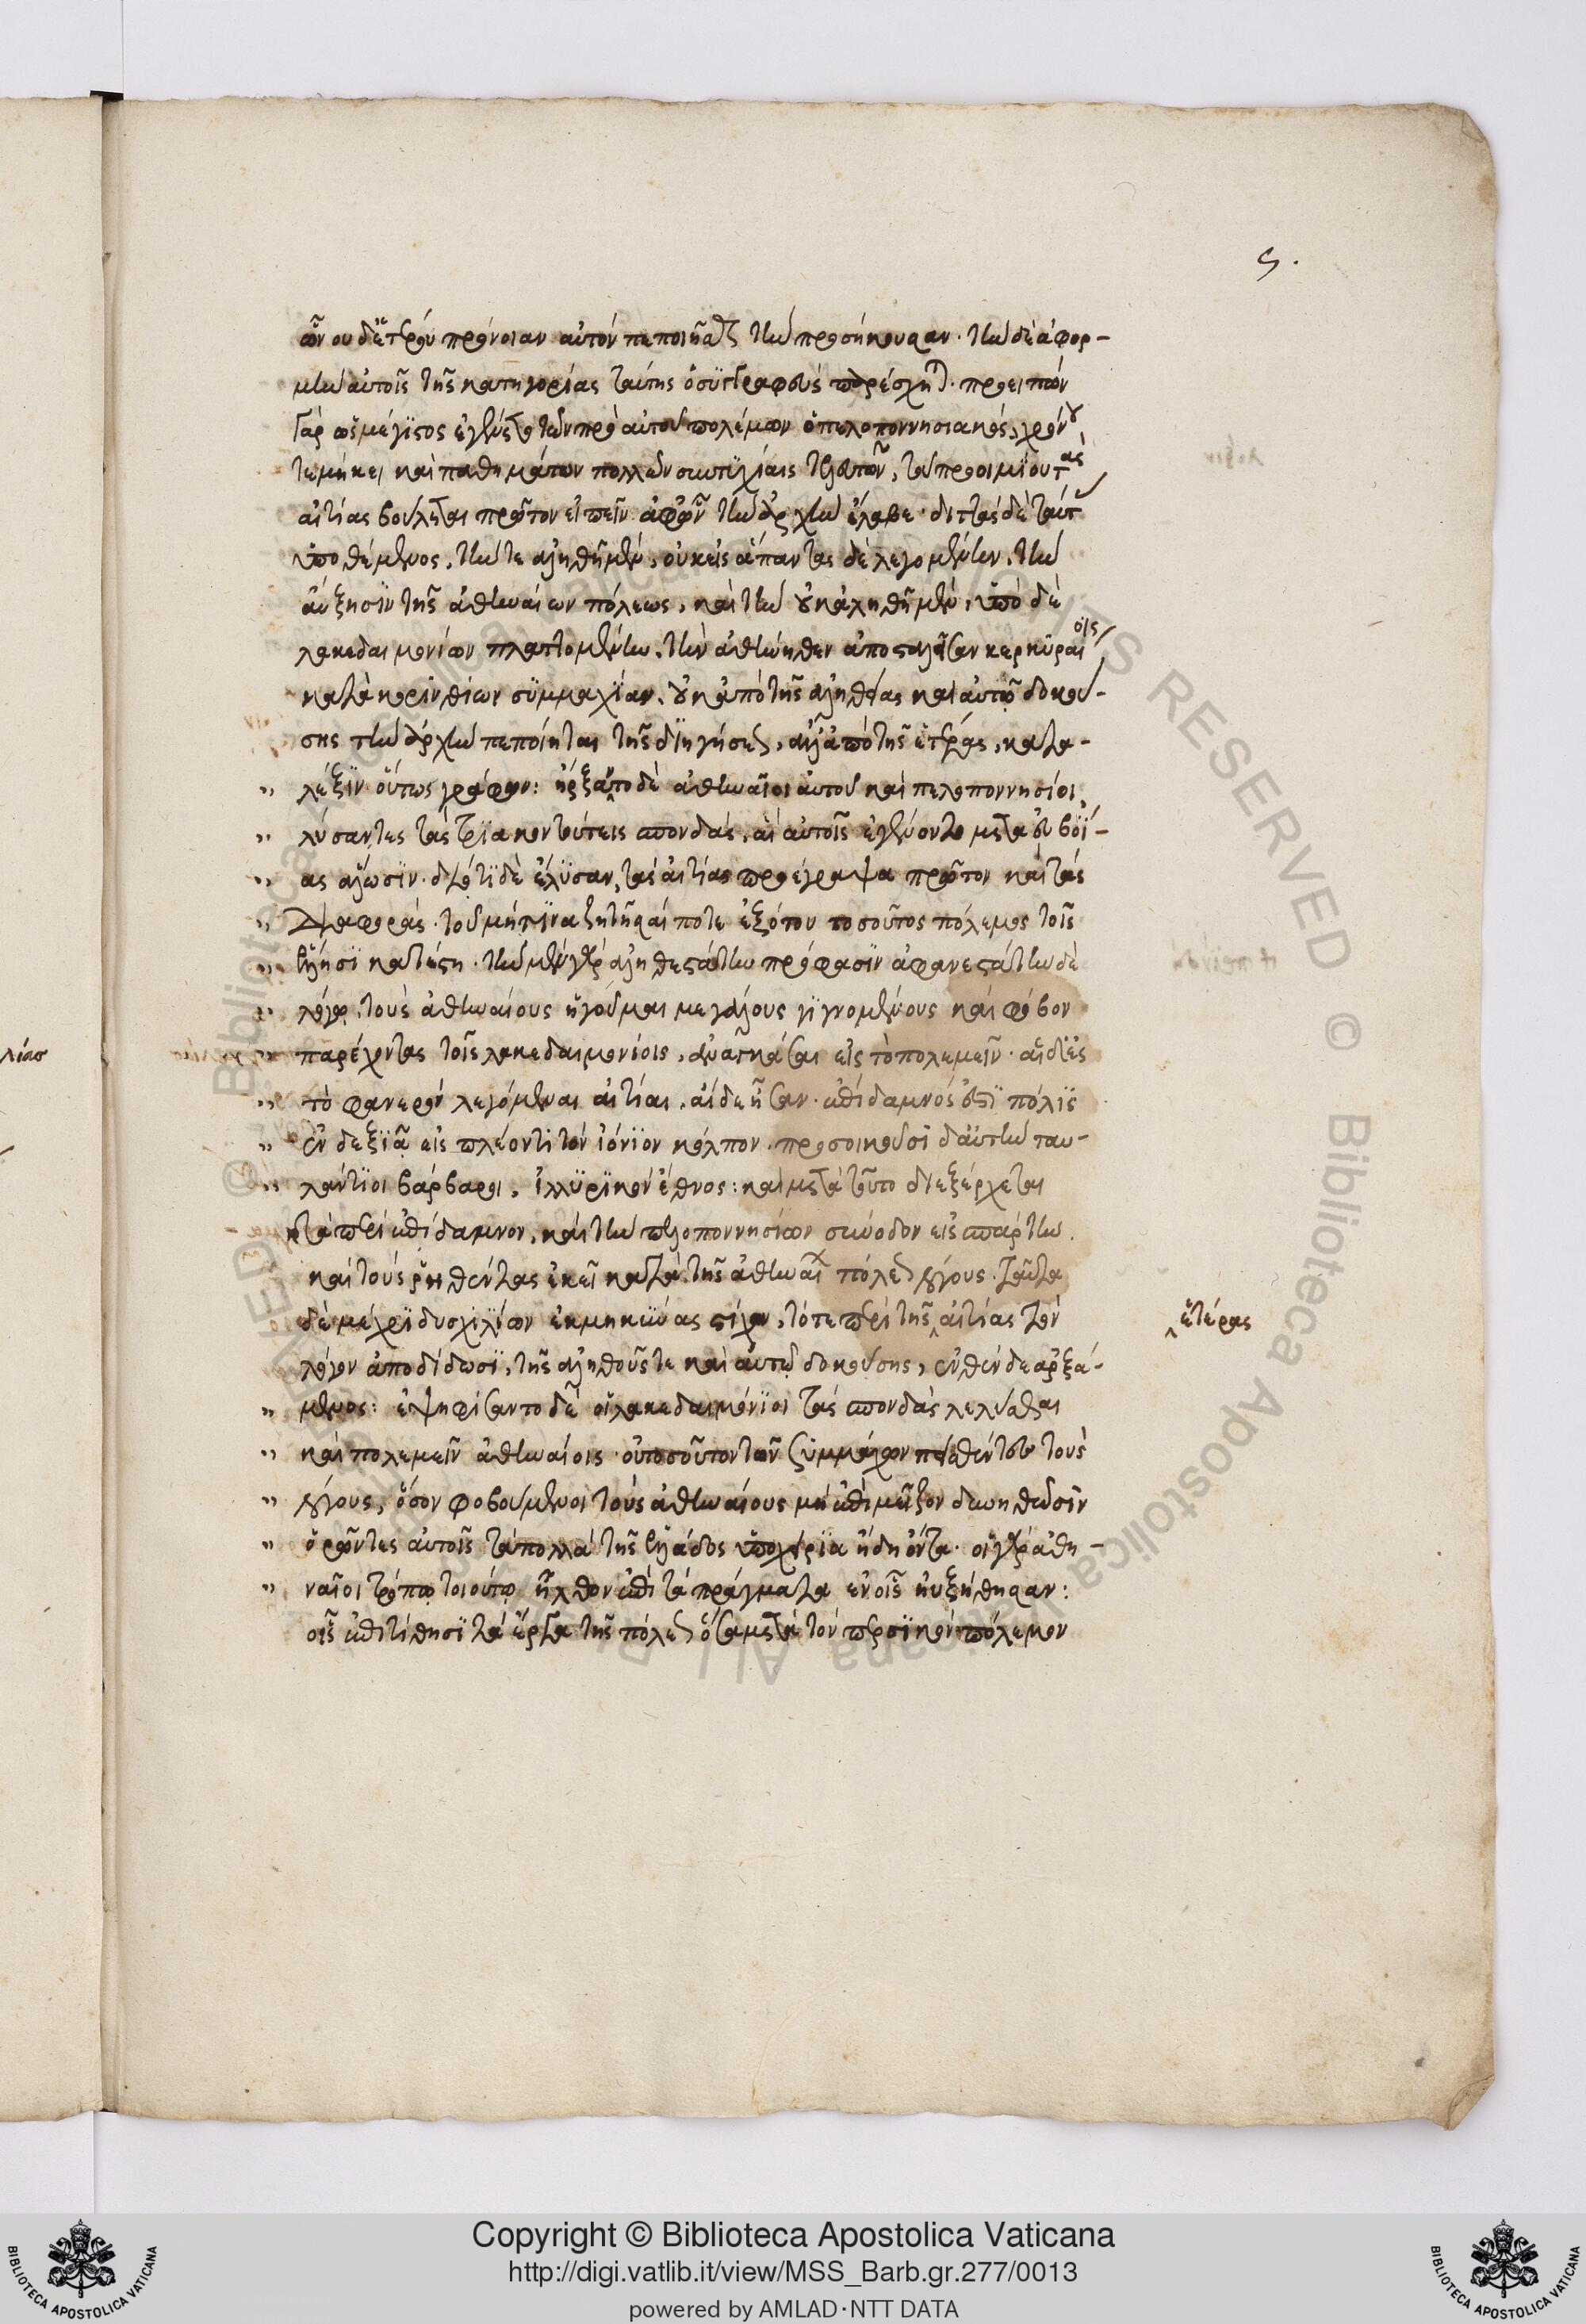 ς.
ὧν οὐδετέρου πρόνοιαν αὐτόν πεποιῆσθαι τὴν προσήκουσαν· τὴν δὲ ἀφορ-
μὴν αὐτοῖς τῆς κατηγορίας ταύτης ὁ συγγραφεύς παρέσχηται· προειπών
γάρ ὡς μέγιστος ἐγένετο τῶν πρό αὐτοῦ πολέμων ὁ πελοποννησιακός, χρόνου
τε μήκει καί παθημάτων πολλῶν συντυχίαις τελευτῶν, τοῦ προοιμίου τάς
αἰτίας βούλεται πρῶτον εἰπεῖν ἀφ' ὧν τὴν ἀρχὴν ἔλαβε· διττάς δὲ ταύτας
ὑποθέμενος, τήν τε ἀληθῆ μέν, οὐκ εἰς ἅπαντας δὲ λεγομένην, τὴν
αὔξησιν τῆς ἀθηναίων πόλεως, καί τὴν οὐκ ἀληθῆ μέν, ὑπό δὲ
λακεδαιμονίων πλαττομένην, τήν ἀθήνηθεν ἀποσταλεῖσαν κερκυραίοις
κατά κορινθίων συμμαχίαν, οὐκ ἀπό τῆς ἀληθείας καί αὐτῷ δοκού-
σης τὴν ἀρχὴν πεποίηται τῆς διηγήσεως, ἀλλ' ἀπό τῆς ἑτέρας, κατα-
" λέξιν οὕτως γράφων: ἤρξαντο δὲ ἀθηναῖοι αὐτοῦ καί πελοποννησίοι,
" λύσαντες τάς τριακοντούτεις σπονδάς, αἵ αὐτοῖς ἐγένοντο μετά εὐβοί-
" ας ἅλωσιν· διότι δὲ ἔλυσαν, τάς αἰτίας προέγραψα πρῶτον καί τάς
" διαφοράς· τοῦ μή τινα ζητῆσαί ποτε ἐξ ὅτου τοσοῦτος πόλεμος τοῖς
" ἕλλησι κατέστη· τὴν μέν γάρ ἀληθεστάτην πρόφασιν ἀφανεστάτην δὲ
" λόγῳ, τούς ἀθηναίους ἡγοῦμαι μεγάλους γιγνομένους καί φόβον
" παρέχοντας τοῖς λακεδαιμονίοις, ἀναγκάσαι εἰς τό πολεμεῖν· αἱ δ' ἐς
" τό φανερόν λεγόμεναι αἰτίαι, αἵδε ἦσαν· ἐπίδαμνός ἐστι πόλις
" ἐν δεξιᾷ εἰς πλέοντι τόν ἰόνιον κόλπον· προσοικοῦσι δ' αὐτὴν ταυ-
" λάντιοι βάρβαροι, ἰλλυρικόν ἔθνος: καί μετά τοῦτο διεξέρχεται
τά περί ἐπίδαμνον, καί τὴν πελοποννησίων σύνοδον εἰς σπάρτην.
καί τούς ῥηθέντας ἐκεῖ κατά τῆς ἀθηναίων πόλεως λόγους· ταῦτα
δὲ μέχρι δυσχιλίων ἐκμηκύνας στίχων, τότε περί τῆς ‸ αἰτίας τόν
‸ ἑτέρας
λόγον ἀποδίδωσι, τῆς ἀληθοῦς τε καί αὐτῷ δοκούσης, ἐνθένδε ἀρξά-
" μενος: ἐψηφίσαντο δὲ οἱ λακεδαιμόνιοι τάς σπονδάς λελύσθαι
" καί πολεμεῖν ἀθηναίοις· οὐ τοσοῦτον τῶν ξυμμάχων πεισθέντες τούς
" λόγους, ὅσον φοβούμενοι τούς ἀθηναίους μή ἐπί μεῖζον δυνηθῶσιν
" ὁρῶντες αὐτοῖς τά πολλά τῆς ἑλλάδος ὑποχείρια ἤδη ὄντα· οἱ γάρ ἀθη-
" ναῖοι τρόπῳ τοιούτῳ ἦλθον ἐπί τά πράγματα ἐν οἷς ηὐξήθησαν:
οἷς ἐπιτίθησι τά ἔργα τῆς πόλεως ὅσα μετά τόν περσικόν πόλεμον
λίασ
© Biblioteca Apostolica Vaticana ALL RIGHTS RESERVED
Copyright © Biblioteca Apostolica Vaticana
http://digi.vatlib.it/view/MSS_Barb.gr.277/0013
powered by AMLAD·NTT DATA
BIBLIOTECA APOSTOLICA VATICANA
BIBLIOTECA APOSTOLICA VATICANA